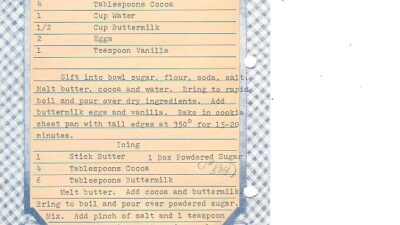 4 Tablespoons Cocoa
1 Cup Water
1/2 Cup Buttermilk
2 Eggs
1 Teaspoon Vanilla
Sift into bowl sugar, flour, soda, salt.
Melt butter, cocoa and water. Bring to rapid
boil and pour over dry ingredients. Add
buttermilk eggs and vanilla. Bake in cookie
sheet pan with tall edges at 350° for 15-20
minutes.
Icing
1 Stick Butter 1 Box Powdered Sugar
4 Tablespoons Cocoa
6 Tablespoons Buttermilk
Melt butter. Add cocoa and buttermilk
Bring to boil and pour over powdered sugar.
Mix. Add pinch of salt and 1 teaspoon